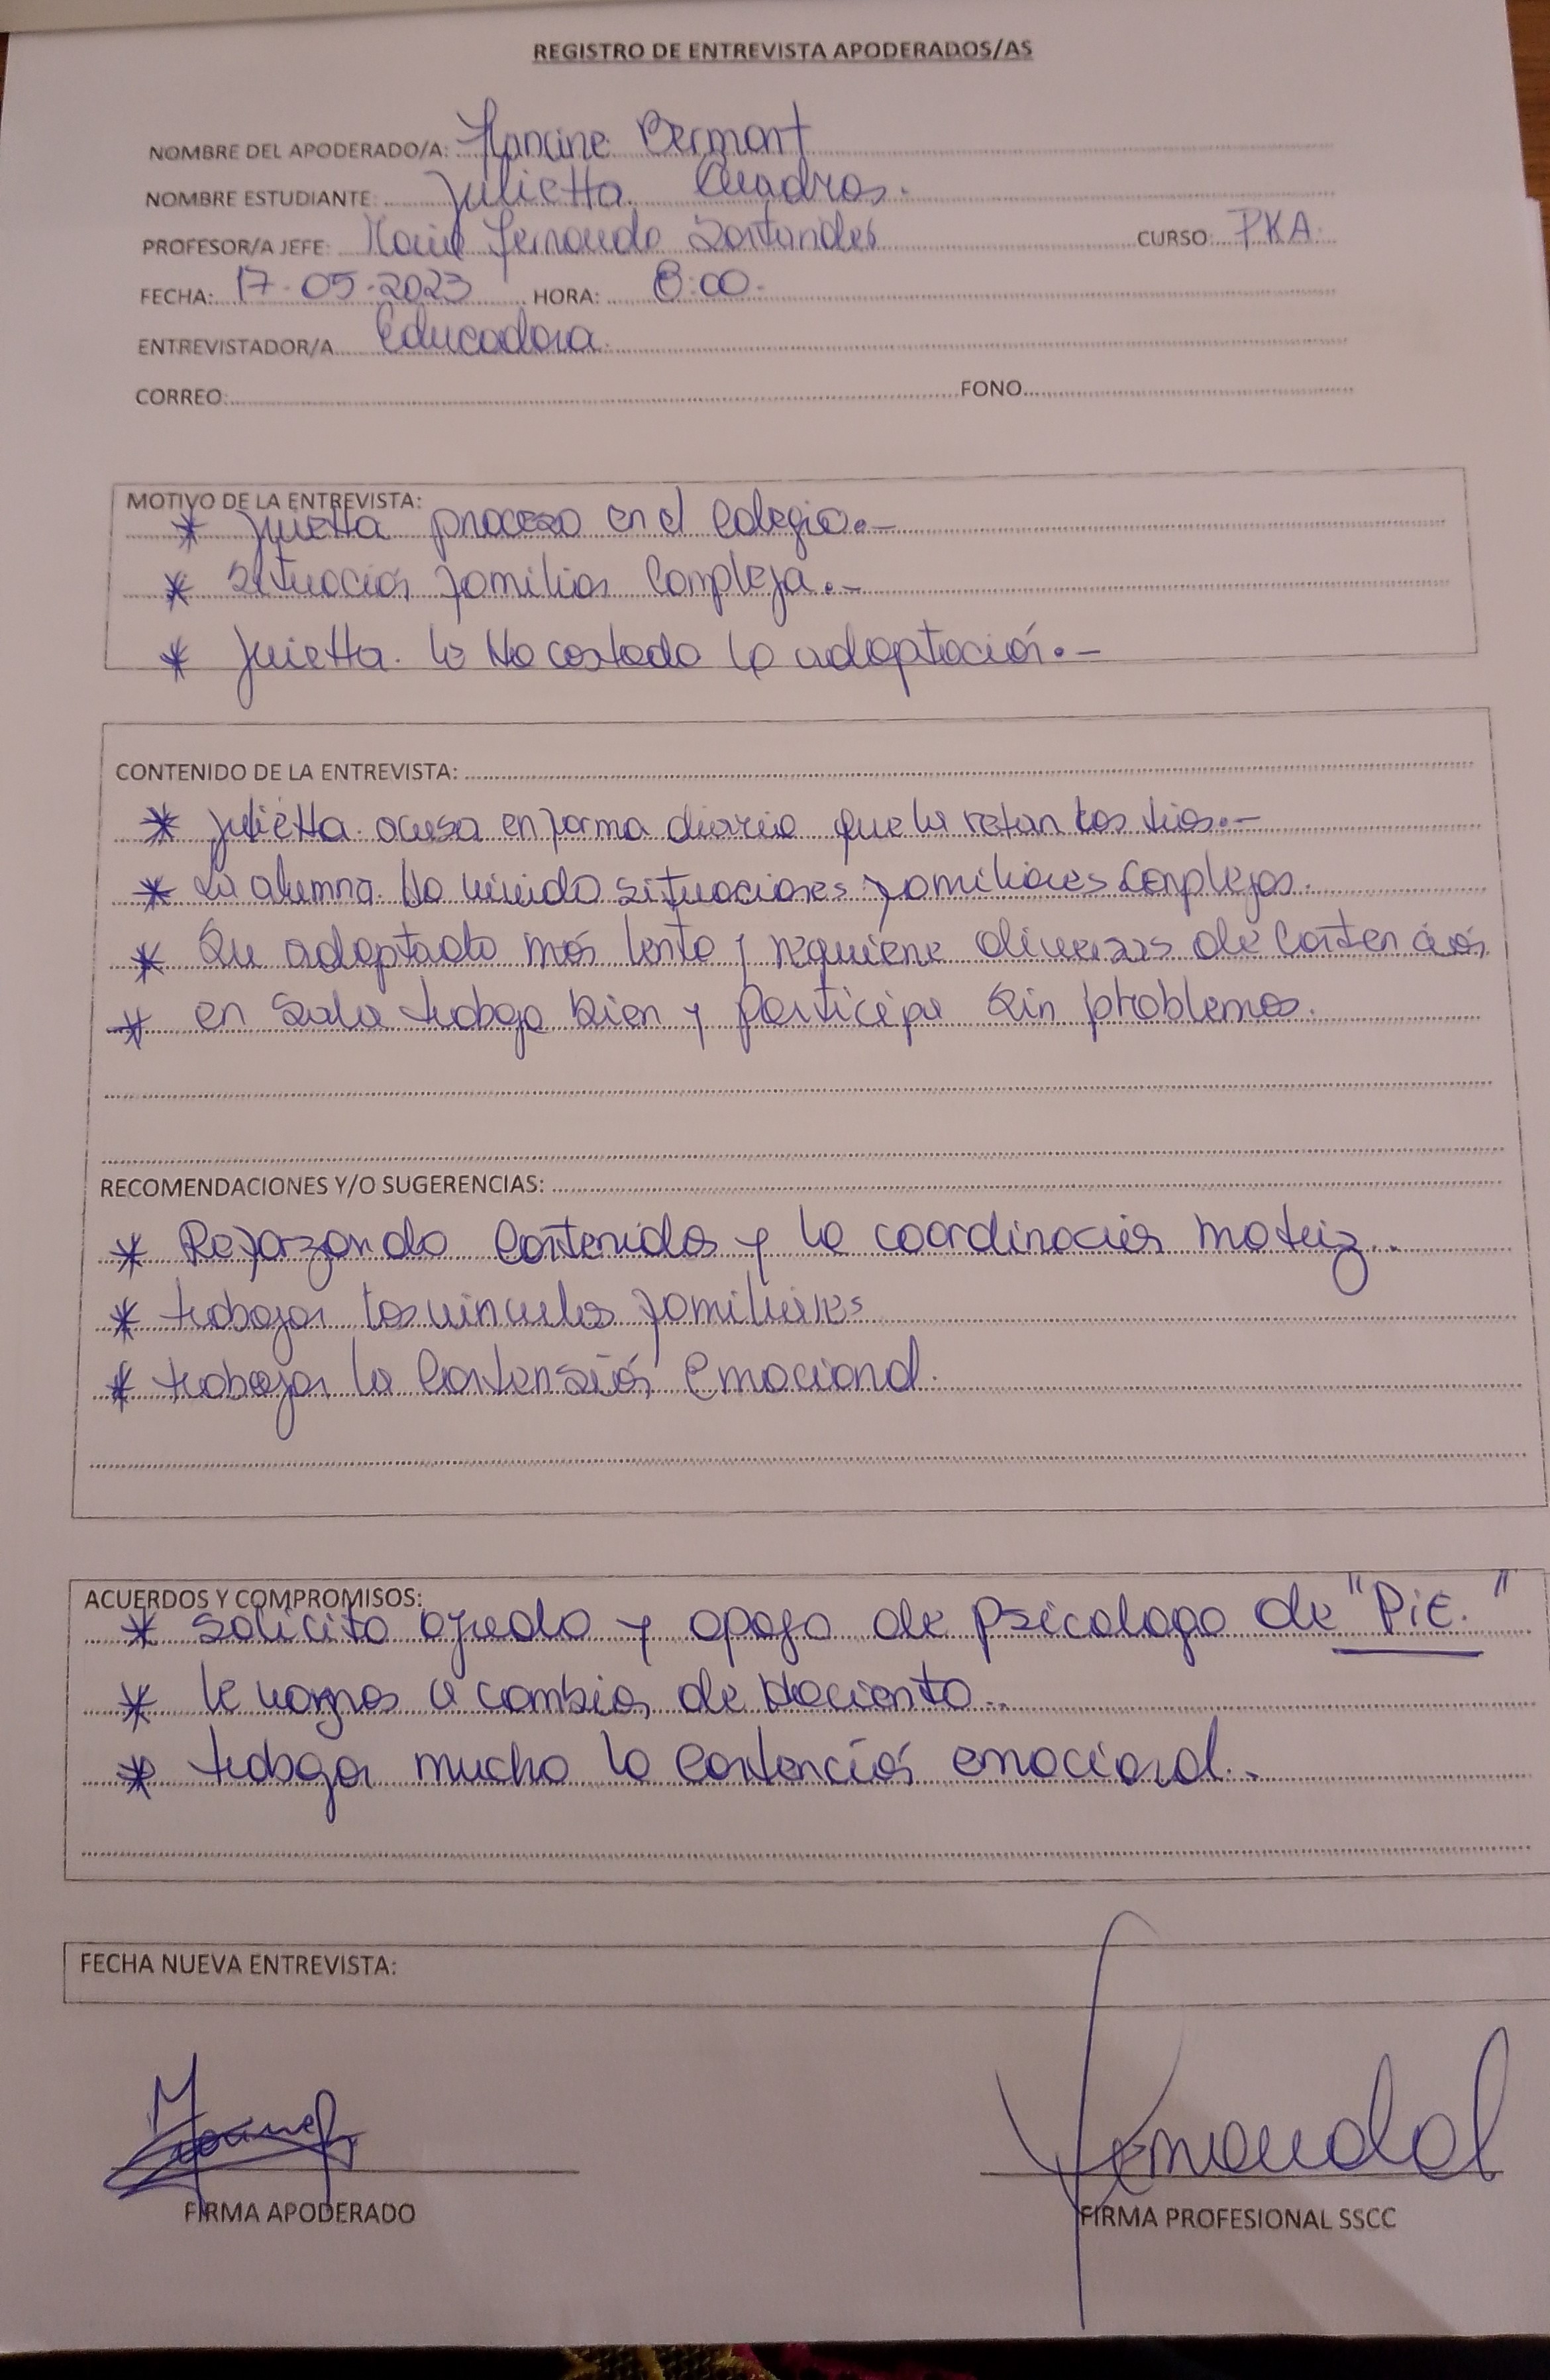 REGISTRO DE ENTREVISTA APODERADOS/AS
NOMBRE DEL APODERADO/A: Francine Bermont
NOMBRE ESTUDIANTE: Julietta Cuadros.
PROFESOR/A JEFE: María Fernanda Santander CURSO: PKA.
FECHA: 17-05-2023 HORA: 8:00.
ENTREVISTADOR/A Educadora.
CORREO: FONO
MOTIVO DE LA ENTREVISTA:
* Julietta proceso en el Colegio.-
* Situación familiar Compleja.-
* Julietta. le Ha costado la adaptación.-
CONTENIDO DE LA ENTREVISTA:
* Julietta acusa en forma diaria que la retan los tíos.-
* La alumna. Ha vivido situaciones familiares Complejas.
* Su adaptado más lento y requiere de Contención
* en Sala trabaja bien y participa Sin problemas.
RECOMENDACIONES Y/O SUGERENCIAS:
* Reforzando Contenidos y la coordinación motriz..
* trabajar los vinculos familiares
* trabajar la Contensión Emocional.
ACUERDOS Y COMPROMISOS:
* Solicito ayuda y apoyo de psicologo de "PiE."
* le a cambiar de
* trabajar mucho la Contención emocional..
FECHA NUEVA ENTREVISTA:
FIRMA APODERADO FIRMA PROFESIONAL SSCC